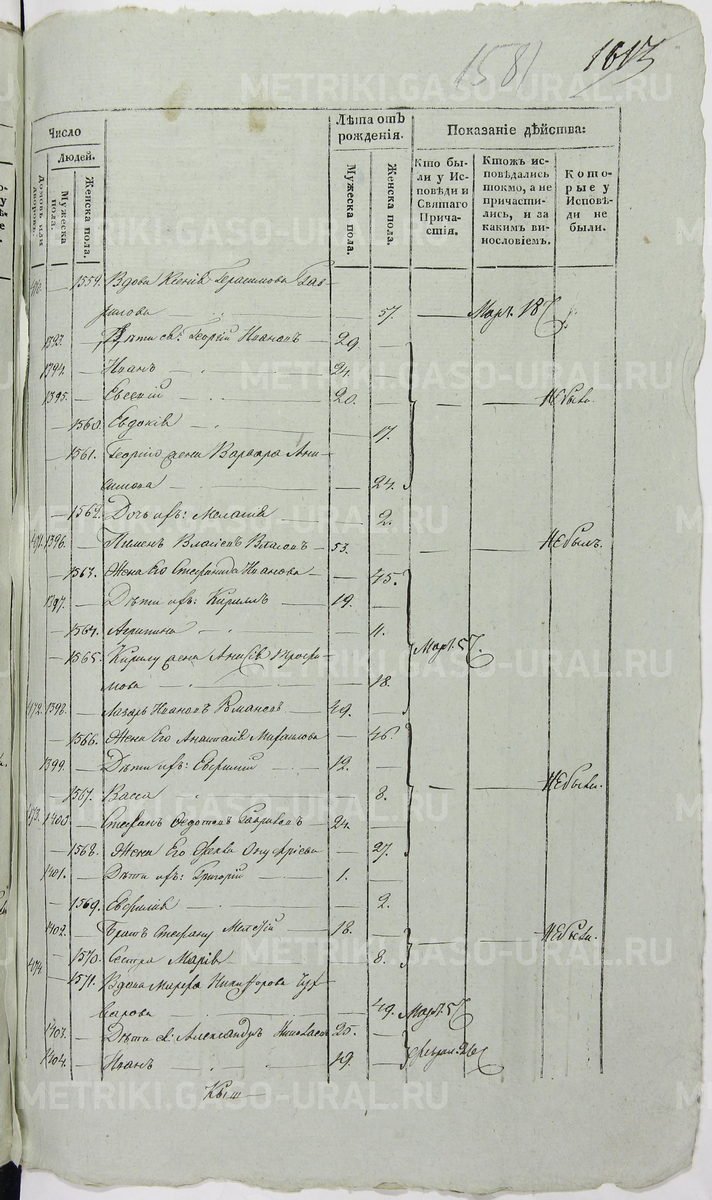 1581 1613
Число
Людей.
Домовъ или дворовъ.
Мужеска пола.
Женска пола.
Лѣта отъ рожденія.
Мужеска пола.
Женска пола.
Показаніе дѣйства:
Кто бы-
ли у Ис-
повѣди и
Святаго
Прича-
стія.
Ктожъ ис-
повѣдались
токмо, а не
причасти-
лись, и за
какимъ ви-
нословіемъ.
Кото-
рые у
Исповѣ-
ди не
были.
— 1559. Вдова Ксенія Герасимова Гав-
рилова — 57. — Мар. 18
1393. — Дѣти ев: Георгій Ивановъ — 29.
1394. — Иванъ — 24.
1395. — Евсевій — 20. — — Не были.
— 1560. Евдокія — 17.
— 1561. Георгію жена Варвара Ани-
симова — 24.
— 1562. Дочь ихъ: Меланія — 2.
471. 1396. — Пименъ Власовъ — 53. — — Не былъ.
— 1563. Жена Его Стефанида Иванова — 45.
1397. — Дѣти ихъ: Кириллъ — 19.
— 1564. Агрипина — 11.
Март. 5
— 1565. Кирилу жена Анисія Трофи-
мова — 18.
472. 1398. — Лазарь Ивановъ Романовъ — 49.
— 1566. Жена Его Анастасія Михаилова — 46.
1399. — Дѣти ихъ: Евфимій — 12. — — Не были.
— 1567. Васса — 8.
473. 1400. — Стефанъ Федотовъ Гавриловъ — 24.
— 1568. Жена Его Фекла Онуфріева — 27.
1401. — Дѣти ихъ: Григорій — 1.
— 1569. Евфимія — 2.
1402. — Братъ Стефану Мелетій — 18. — — Не были.
— 1570. Сестра Марія — 8.
474. — 1571. Вдова Марфа Никифорова
— 49. Март. 5
1403. — Дѣти ея: Александръ — 25.
1404. — Иванъ — 19. Феврал.
METRIKI.GASO-URAL.RU